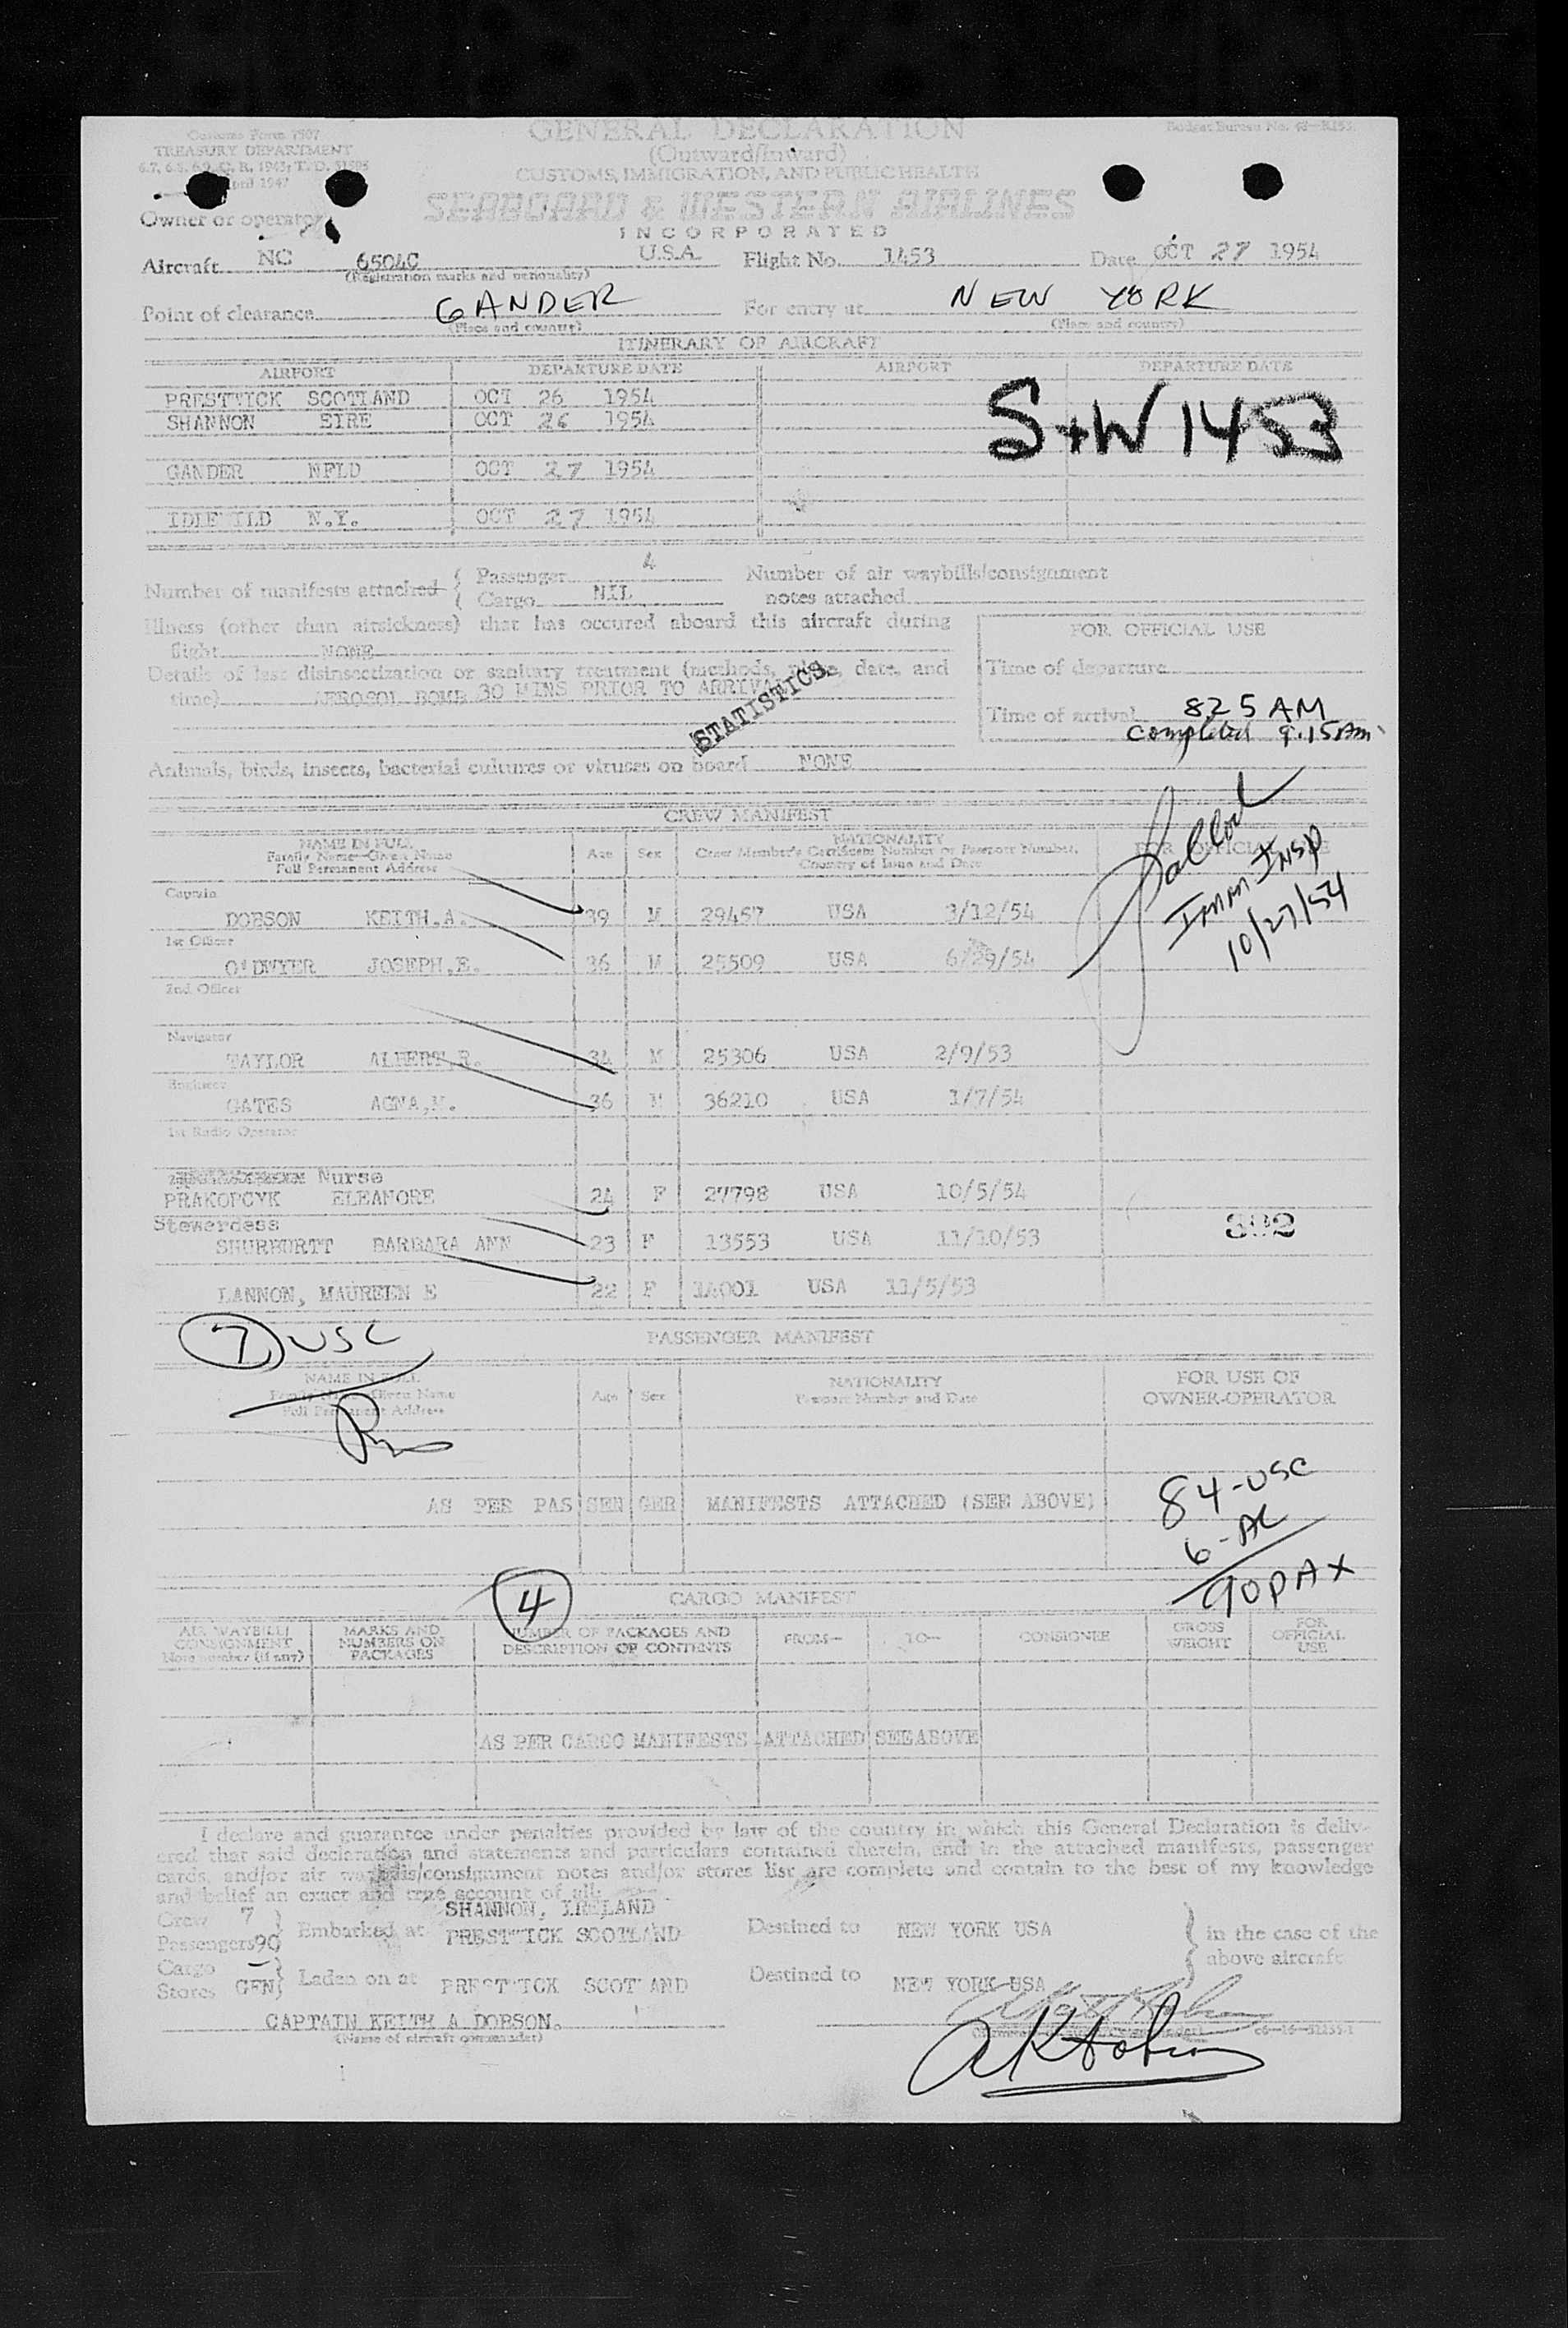 Customs Form 7507
TREASURY DEPARTMENT
April 1947
GENERAL DECLARATION
(Outward/Inward)
CUSTOMS, IMMIGRATION, AND PUBLIC HEALTH
SEABOARD & WESTERN AIRLINES
INCORPORATED
Budget Bureau No.
Owner or operator
Aircraft NC 6504C U.S.A. Flight No. 1453 Date OCT 27 1954
(Registration marks and nationality)
Point of clearance GANDER For entry at NEW YORK
(Place and country) (Place and country)
ITINERARY OF AIRCRAFT
AIRPORT DEPARTURE DATE AIRPORT DEPARTURE DATE
PRESTWICK SCOTLAND OCT 26 1954
SHANNON EIRE OCT 26 1954
S+W 1453
GANDER NFLD OCT 27 1954
IDLE ILD N.Y. OCT 27 1954
Number of manifests attached { Passenger 4
Cargo NIL
Number of air waybills/consignment
notes attached
Illness (other than airsickness) that has occured aboard this aircraft during
flight NONE
Details of last disinsectization or sanitary treatment (methods, place, date, and
time) AEROSOL BOMB 30 MINS PRIOR TO ARRIVAL
STATISTICS
FOR OFFICIAL USE
Time of departure
Time of arrival 825 AM
Completed 9.15 Am
Animals, birds, insects, bacterial cultures or viruses on board NONE
CREW MANIFEST
NAME IN FULL
Family Name—Given Name
Full Permanent Address
Age Sex
NATIONALITY
Crew Member's Certificate Number or Passport Number,
Country of Issue and Date
FOR OFFICIAL USE
Imm Insp
10/27/54
Captain
DOBSON KEITH.A. 39 M 29457 USA 3/12/54
1st Officer
O'DWYER JOSEPH.E. 36 M 25509 USA 6/29/54
2nd Officer
Navigator
TAYLOR ALBERT.R. 34 M 25306 USA 2/9/53
Engineer
GATES 36 M 36210 USA 1/7/54
1st Radio Operator
Nurse
PRAKOPCYK ELEANORE 24 F 27798 USA 10/5/54
Stewerdess
SHURBURTT BARBARA ANN 23 F 13553 USA 11/10/53
LANNON, MAUREEN E 22 F 14001 USA 11/5/53
7 USC
PASSENGER MANIFEST
NAME IN FULL
Family Name—Given Name
Full Permanent Address
Age Sex
NATIONALITY
Passport Number and Date
FOR USE OF
OWNER-OPERATOR
AS PER PASSENGER MANIFESTS ATTACHED (SEE ABOVE)
84-USC
6-AL
90 PAX
4
CARGO MANIFEST
AIR WAYBILL/
CONSIGNMENT
Note number (if any)
MARKS AND
NUMBERS ON
PACKAGES
NUMBER OF PACKAGES AND
DESCRIPTION OF CONTENTS
FROM—
TO—
CONSIGNEE
GROSS
WEIGHT
FOR
OFFICIAL
USE
AS PER CARGO MANIFESTS ATTACHED SEE ABOVE
I declare and guarantee under penalties provided by law of the country in which this General Declaration is deliv-
ered that said declaration and statements and particulars contained therein, and in the attached manifests, passenger
cards, and/or air waybills/consignment notes and/or stores list are complete and contain to the best of my knowledge
and belief an exact and true account of all:
Crew 7
Passengers 90
} Embarked at SHANNON, IRELAND
PRESTWICK SCOTLAND
Destined to NEW YORK USA
Cargo —
Stores GEN
} Laden on at PREST ICK SCOT AND
Destined to NEW YORK USA
} in the case of the
above aircraft
CAPTAIN KEITH A DOBSON.
(Name of aircraft commander)